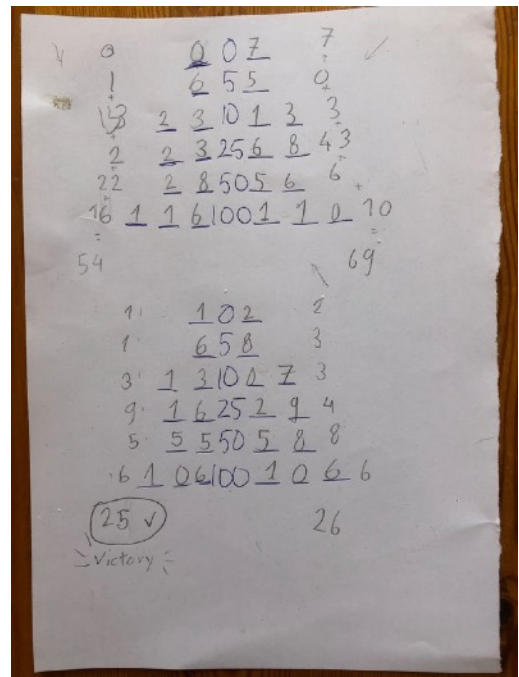 0 0 0 7 7
1 6 5 5 0
13 2 3 10 1 3 3
2 2 3 25 6 8 43
22 2 8 50 5 6 6
16 1 1 6 100 1 1 0 10
= =
54 69
1 1 0 2 2
1 6 5 8 3
3 1 3 10 0 7 3
9 1 6 25 2 9 4
5 5 5 50 5 8 8
6 1 0 6 100 1 0 6 6
25 ✓ 26
Victory